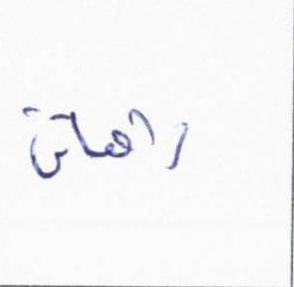 راهاتن